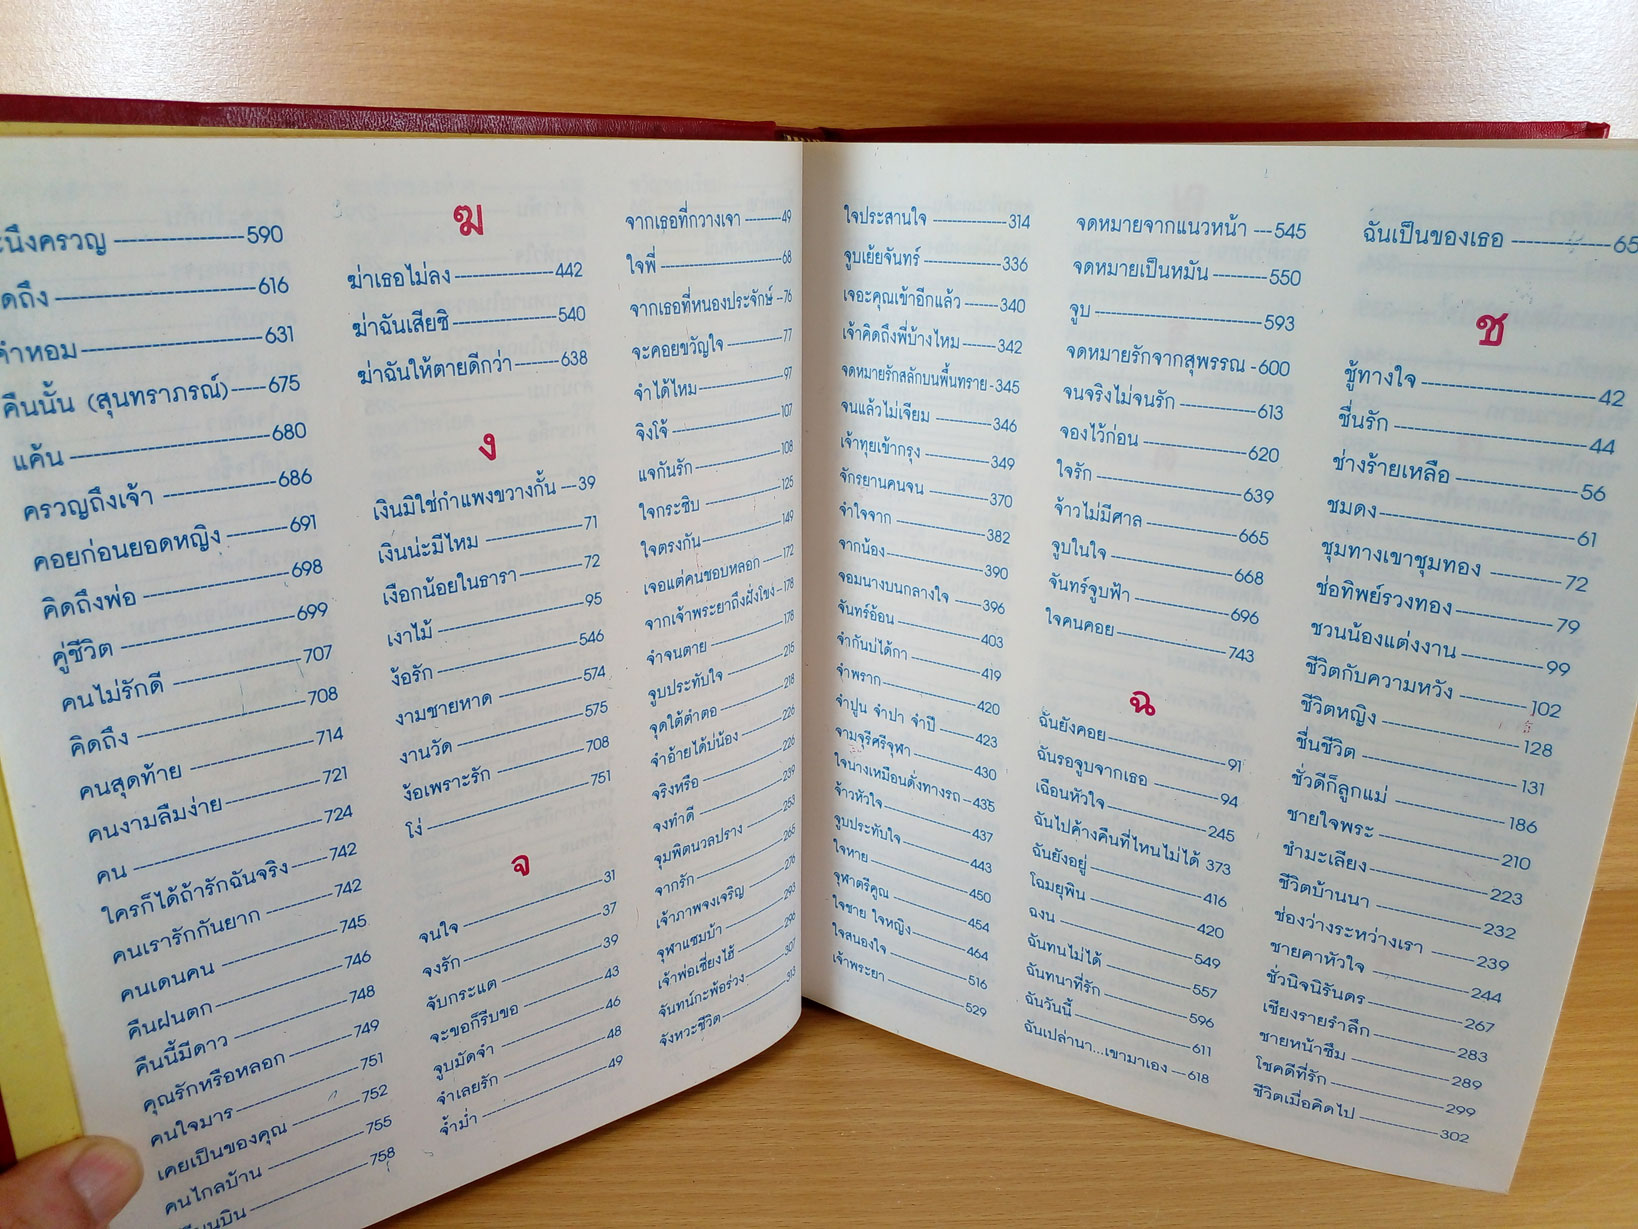 590
616
631
คืนนั้น (สุนทราภรณ์) 675
แค้น 680
ครวญถึงเจ้า 686
คอยก่อนยอดหญิง 691
คิดถึงพ่อ 698
คู่ชีวิต 699
คนไม่รักดี 707
คิดถึง 708
คนสุดท้าย 714
คนงามลืมง่าย 721
คน 724
ใครก็ได้ถ้ารักฉันจริง 742
คนเรารักกันยาก 742
คนเดนคน 745
คืนฝนตก 746
คืนนี้มีดาว 748
คุณรักหรือหลอก 749
คนใจมาร 751
เคยเป็นของคุณ 752
คนไกลบ้าน 755
758
ฆ
ฆ่าเธอไม่ลง 442
ฆ่าฉันเสียซิ 540
ฆ่าฉันให้ตายดีกว่า 638
ง
เงินมิใช่กำแพงขวางกั้น 39
เงินน่ะมีไหม 71
เงือกน้อยในธารา 72
เงาไม้ 95
ง้อรัก 546
งามชายหาด 574
งานวัด 575
ง้อเพราะรัก 708
โง่ 751
จ
จนใจ 31
จงรัก 37
จับกระแต 39
จะขอก็รีบขอ 43
จูบมัดจำ 46
จำเลยรัก 48
จ้ำม่ำ 49
จากเธอที่กวางเจา 49
ใจพี่ 68
จากเธอที่หนองประจักษ์ 76
จะคอยขวัญใจ 77
จำได้ไหม 97
จิงโจ้ 107
แจกันรัก 108
ใจกระซิบ 125
ใจตรงกัน 149
เจอแต่คนชอบหลอก 172
จากเจ้าพระยาถึงฝั่งโขง 178
จำจนตาย 178
จูบประทับใจ 215
จุดใต้ตำตอ 218
จำอ้ายได้บ่น้อง 226
จริงหรือ 226
จงทำดี 239
จุมพิตนวลปราง 253
จากรัก 265
เจ้าภาพจงเจริญ 276
จุฬาแซมบ้า 293
เจ้าพ่อเซี่ยงไฮ้ 296
จันทน์กะพ้อร่วง 307
จังหวะชีวิต 313
ใจประสานใจ 314
จูบเย้ยจันทร์ 336
เจอะคุณเข้าอีกแล้ว 340
เจ้าคิดถึงพี่บ้างไหม 342
จดหมายรักสลักบนพื้นทราย 345
จนแล้วไม่เจียม 346
เจ้าทุยเข้ากรุง 349
จักรยานคนจน 370
จำใจจาก 382
จากน้อง 390
จอมนางบนกลางใจ 396
จันทร์อ้อน 403
จำกันบ่ได้กา 419
จำพราก 420
จำปูน จำปา จำปี 423
จามจุรีศรีจุฬา 430
ใจนางเหมือนดั่งทางรถ 435
จ้าวหัวใจ 437
จูบประทับใจ 443
ใจหาย 450
จุฬาตรีคูณ 454
ใจชาย ใจหญิง 464
ใจสนองใจ 516
เจ้าพระยา 529
จดหมายจากแนวหน้า 545
จดหมายเป็นหมัน 550
จูบ 593
จดหมายรักจากสุพรรณ 600
จนจริงไม่จนรัก 613
จองไว้ก่อน 620
ใจรัก 639
จ้าวไม่มีศาล 665
จูบในใจ 668
จันทร์จูบฟ้า 696
ใจคนคอย 743
ฉ
ฉันยังคอย 91
ฉันรอจูบจากเธอ 94
เฉือนหัวใจ 245
ฉันไปค้างคืนที่ไหนไม่ได้ 373
ฉันยังอยู่ 416
โฉมยุพิน 420
ฉงน 549
ฉันทนไม่ได้ 557
ฉันทนาที่รัก 596
ฉันวันนี้ 611
ฉันเปล่านา...เขามาเอง 618
ฉันเป็นของเธอ 65
ช
ชู้ทางใจ 42
ชื่นรัก 44
ช่างร้ายเหลือ 56
ชมดง 61
ชุมทางเขาชุมทอง 72
ช่อทิพย์รวงทอง 79
ชวนน้องแต่งงาน 99
ชีวิตกับความหวัง 102
ชีวิตหญิง 128
ชื่นชีวิต 131
ชั่วดีก็ลูกแม่ 186
ชายใจพระ 210
ชำมะเลียง 223
ชีวิตบ้านนา 232
ช่องว่างระหว่างเรา 239
ชายคาหัวใจ 244
ชั่วนิจนิรันดร 267
เชียงรายรำลึก 283
ชายหน้าซึม 289
โชคดีที่รัก 299
ชีวิตเมื่อคิดไป 302